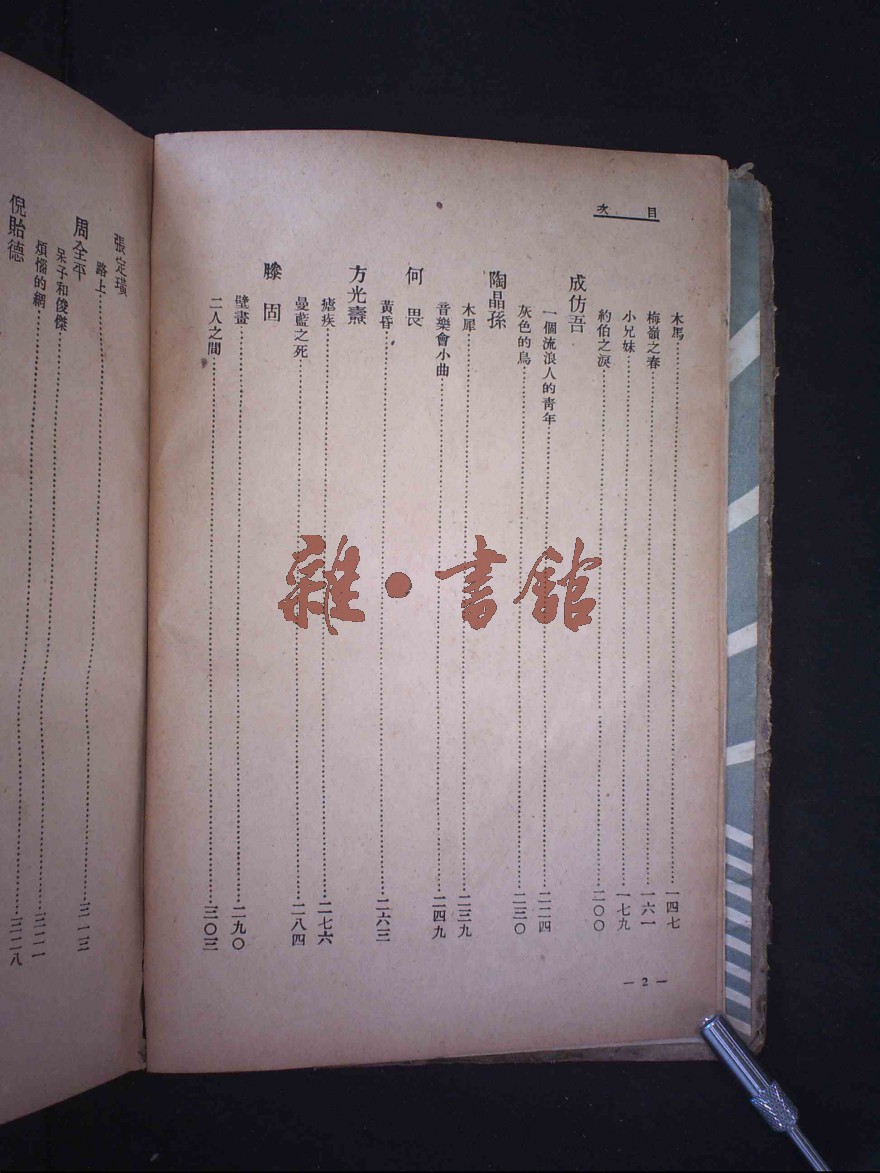 目次
木馬……一四七
梅嶺之春……一六一
小兄妹……一七九
約伯之淚……二〇〇
成仿吾
一個流浪人的青年……二二四
灰色的鳥……二三〇
陶晶孫
木犀……二三九
音樂會小曲……二四九
何畏
黃昏……二六三
方光燾
瘧疾……二七六
曼藍之死……二八四
滕固
壁畫……二九〇
二人之間……三〇三
— 2 —
張定璜
路上……三一三
周全平
呆子和俊傑……三二一
煩惱的網……三二八
倪貽德
雜·書館